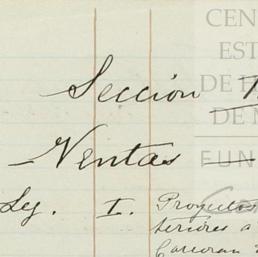 CEN
EST
DE H
DE M
FUN
Sección
Ventas
Leg. I. Proyectos
teriores a
Carcoran